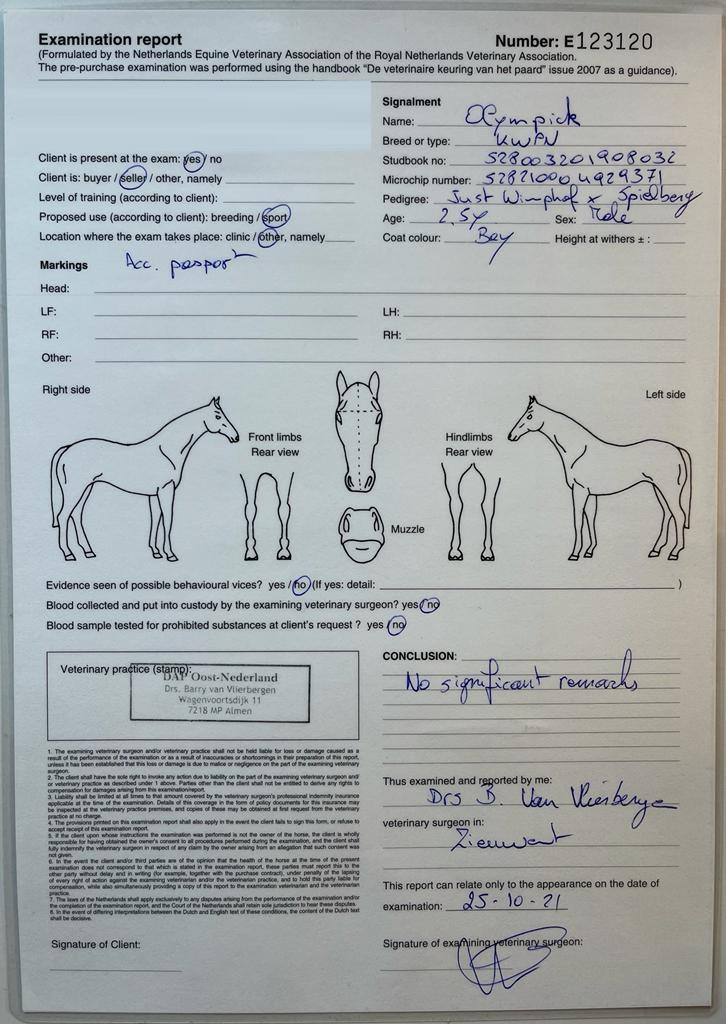 Examination report
Number: E123120
(Formulated by the Netherlands Equine Veterinary Association of the Royal Netherlands Veterinary Association.
The pre-purchase examination was performed using the handbook "De veterinaire keuring van het paard" issue 2007 as a guidance).
Signalment
Name: Olympick
Breed or type: KWPN
Studbook no: 528003201908032
Microchip number: 528210004929371
Pedigree: Just Wimphof x Spielberg
Age: 2,5y Sex: Male
Coat colour: Bay Height at withers ± :
Client is present at the exam: yes / no
Client is: buyer / seller / other, namely
Level of training (according to client):
Proposed use (according to client): breeding / sport
Location where the exam takes place: clinic / other, namely
Markings Acc. passport
Head:
LF: LH:
RF: RH:
Other:
Right side
Left side
Front limbs
Rear view
Hindlimbs
Rear view
Muzzle
Evidence seen of possible behavioural vices? yes / no (If yes: detail: )
Blood collected and put into custody by the examining veterinary surgeon? yes / no
Blood sample tested for prohibited substances at client's request ? yes / no
Veterinary practice (stamp):
DAP Oost-Nederland
Drs. Barry van Vlierbergen
Wagenvoortsdijk 11
7218 MP Almen
1. The examining veterinary surgeon and/or veterinary practice shall not be held liable for loss or damage caused as a
result of the performance of the examination or as a result of inaccuracies or shortcomings in their preparation of this report,
unless it has been established that this loss or damage is due to malice or negligence on the part of the examining veterinary
surgeon.
2. The client shall have the sole right to invoke any action due to liability on the part of the examining veterinary surgeon and/
or veterinary practice as described under 1 above. Parties other than the client shall not be entitled to derive any rights to
compensation for damages arising from this examination/report.
3. Liability shall be limited at all times to that amount covered by the veterinary surgeon's professional indemnity insurance
applicable at the time of the examination. Details of this coverage in the form of policy documents for this insurance may
be inspected at the veterinary practice premises, and copies of these may be obtained at first request from the veterinary
practice at no charge.
4. The provisions printed on this examination report shall also apply in the event the client fails to sign this form, or refuse to
accept receipt of this examination report.
5. If the client upon whose instructions the examination was performed is not the owner of the horse, the client is wholly
responsible for having obtained the owner's consent to all procedures performed during the examination, and the client shall
fully indemnify the veterinary surgeon in respect of any claim by the owner arising from an allegation that such consent was
not given.
6. In the event the client and/or third parties are of the opinion that the health of the horse at the time of the present
examination does not correspond to that which is stated in the examination report, these parties must report this to the
other party without delay and in writing (for example, together with the purchase contract), under penalty of the lapsing
of every right of action against the examining veterinarian and/or the veterinary practice, and to hold this party liable for
compensation, while also simultaneously providing a copy of this report to the examination veterinary and the veterinary
practice.
7. The laws of the Netherlands shall apply exclusively to any disputes arising from the performance of the examination and/or
the completion of the examination report, and the Court of the Netherlands shall retain sole jurisdiction to hear these disputes.
8. In the event of differing interpretations between the Dutch and English text of these conditions, the content of the Dutch text
shall be decisive.
CONCLUSION:
No significant remarks
Thus examined and reported by me:
Drs B. Van Vlierbergen
veterinary surgeon in:
Zieuwent
This report can relate only to the appearance on the date of
examination: 25-10-21
Signature of Client:
Signature of examining veterinary surgeon: